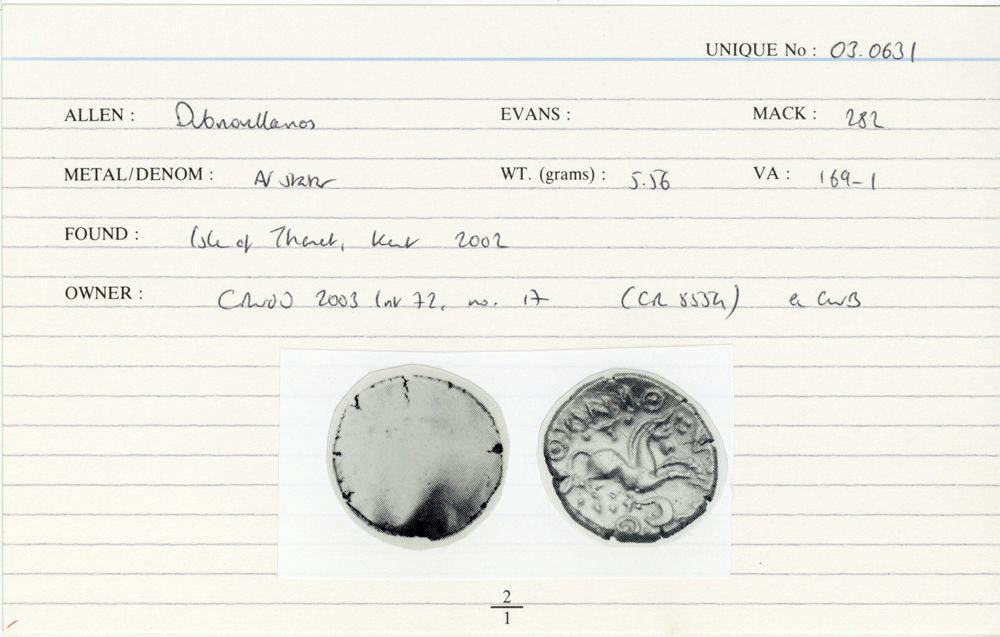 UNIQUE No : 03.0631
ALLEN : Dubnovellaunos EVANS : MACK : 282
METAL/DENOM : AV stater WT. (grams) : 5.56 VA : 169-1
FOUND : Isle of Thanet, Kent 2002
OWNER : 2003 Inv 72, no. 17 (CR
2
1